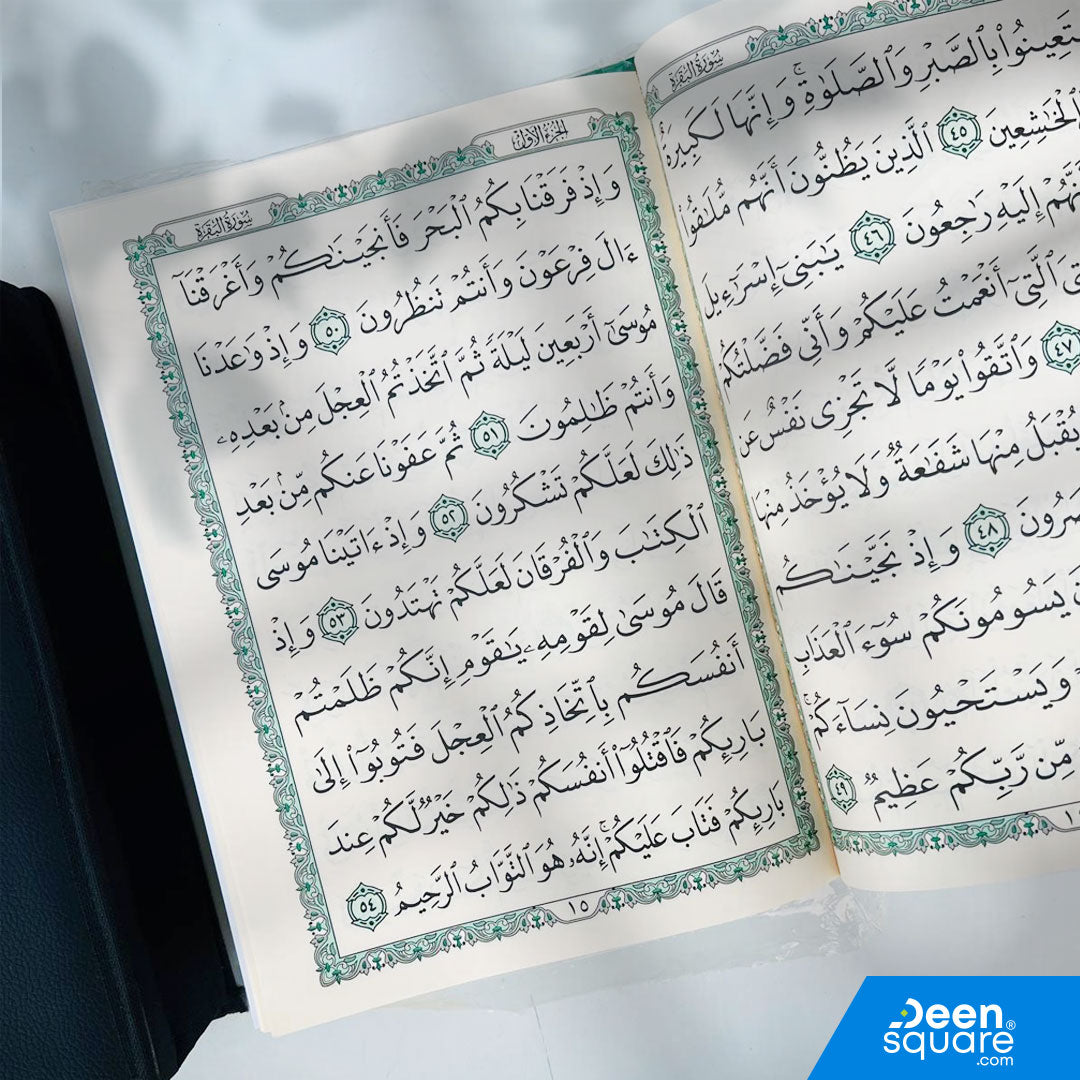 سُورَةُ البَقَرَةِ
تَعِينُوا۟ بِٱلصَّبْرِ وَٱلصَّلَوٰةِ ۚ وَإِنَّهَا لَكَبِيرَةٌ
ٱلْخَـٰشِعِينَ ٤٥ ٱلَّذِينَ يَظُنُّونَ أَنَّهُم مُّلَـٰقُوا۟
نَّهُمْ إِلَيْهِ رَٰجِعُونَ ٤٦ يَـٰبَنِىٓ إِسْرَٰٓءِيلَ
ٱلَّتِىٓ أَنْعَمْتُ عَلَيْكُمْ وَأَنِّى فَضَّلْتُكُمْ
٤٧ وَٱتَّقُوا۟ يَوْمًا لَّا تَجْزِى نَفْسٌ عَن
يُقْبَلُ مِنْهَا شَفَـٰعَةٌ وَلَا يُؤْخَذُ مِنْهَا
صَرُونَ ٤٨ وَإِذْ نَجَّيْنَـٰكُم
يَسُومُونَكُمْ سُوٓءَ ٱلْعَذَابِ
وَيَسْتَحْيُونَ نِسَآءَكُمْ ۚ
مِّن رَّبِّكُمْ عَظِيمٌ ٤٩
الجُزْءُ الأَوَّلُ
سُورَةُ البَقَرَةِ
وَإِذْ فَرَقْنَا بِكُمُ ٱلْبَحْرَ فَأَنجَيْنَـٰكُمْ وَأَغْرَقْنَآ
ءَالَ فِرْعَوْنَ وَأَنتُمْ تَنظُرُونَ ٥٠ وَإِذْ وَٰعَدْنَا
مُوسَىٰٓ أَرْبَعِينَ لَيْلَةً ثُمَّ ٱتَّخَذْتُمُ ٱلْعِجْلَ مِنۢ بَعْدِهِۦ
وَأَنتُمْ ظَـٰلِمُونَ ٥١ ثُمَّ عَفَوْنَا عَنكُم مِّنۢ بَعْدِ
ذَٰلِكَ لَعَلَّكُمْ تَشْكُرُونَ ٥٢ وَإِذْ ءَاتَيْنَا مُوسَى
ٱلْكِتَـٰبَ وَٱلْفُرْقَانَ لَعَلَّكُمْ تَهْتَدُونَ ٥٣ وَإِذْ
قَالَ مُوسَىٰ لِقَوْمِهِۦ يَـٰقَوْمِ إِنَّكُمْ ظَلَمْتُمْ
أَنفُسَكُم بِٱتِّخَاذِكُمُ ٱلْعِجْلَ فَتُوبُوٓا۟ إِلَىٰ
بَارِئِكُمْ فَٱقْتُلُوٓا۟ أَنفُسَكُمْ ذَٰلِكُمْ خَيْرٌ لَّكُمْ عِندَ
بَارِئِكُمْ فَتَابَ عَلَيْكُمْ ۚ إِنَّهُۥ هُوَ ٱلتَّوَّابُ ٱلرَّحِيمُ ٥٤
١٥
Deen
square®
.com